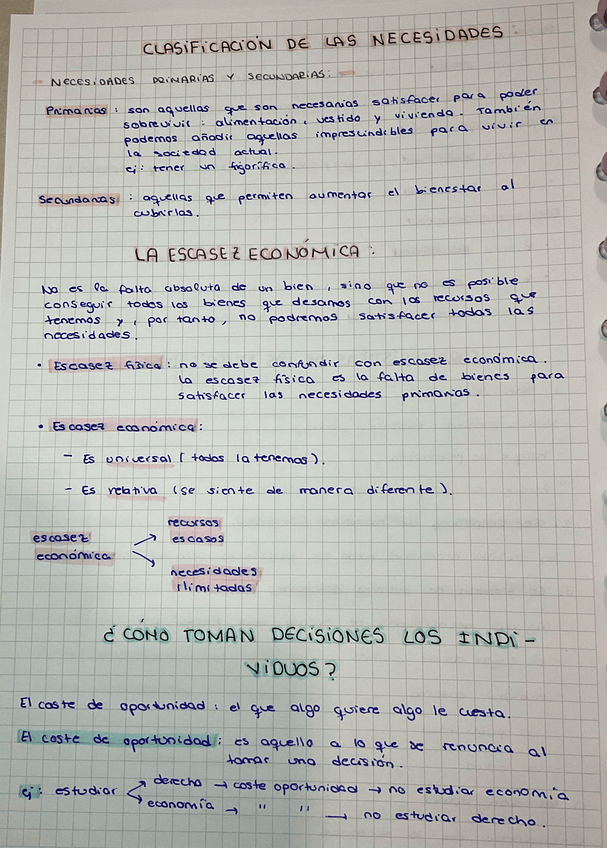 CLASIFICACIÓN DE LAS NECESIDADES
NECESIDADES PRIMARIAS Y SECUNDARIAS:
Primarias : son aquellas que son necesarias satisfacer para poder
sobrevivir : alimentación, vestido y vivienda. También
podemos añadir aquellas imprescindibles para vivir en
la sociedad actual.
ej: tener un frigorífico.
Secundarias : aquellas que permiten aumentar el bienestar al
cubrirlas.
LA ESCASEZ ECONÓMICA :
No es la falta absoluta de un bien, sino que no es posible
conseguir todos los bienes que desamos con los recursos que
tenemos y, por tanto, no podremos satisfacer todas las
necesidades.
• Escasez física : no se debe confundir con escasez económica.
la escasez física es la falta de bienes para
satisfacer las necesidades primarias.
• Escasez económica :
- Es universal (todos la tenemos).
- Es relativa (se siente de manera diferente).
recursos
escasos
escasez
económica
necesidades
ilimitadas
¿CÓMO TOMAN DECISIONES LOS INDI-
VIDUOS?
El coste de oportunidad : el que algo quiere algo le cuesta.
El coste de oportunidad : es aquello a lo que se renuncia al
tomar una decisión.
ej: estudiar derecho → coste oportunidad → no estudiar economía
economía → " " → no estudiar derecho.